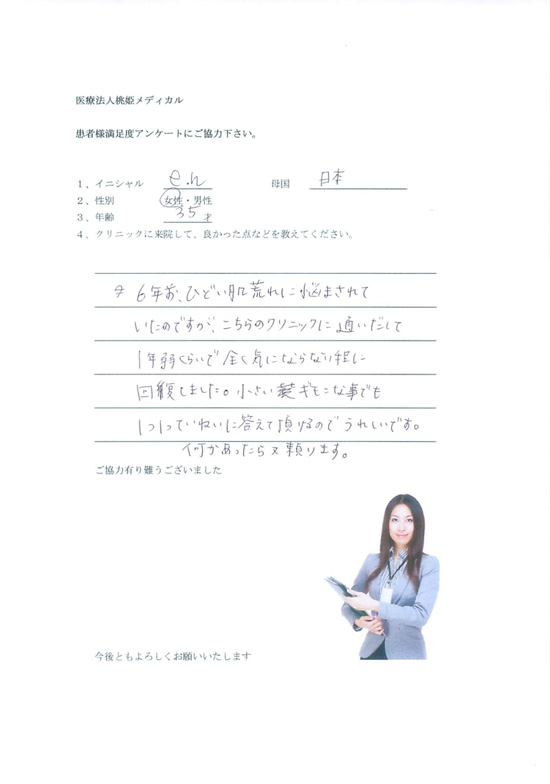 医療法人桃姫メディカル
患者様満足度アンケートにご協力下さい。
1、イニシャル e.n 母国 日本
2、性別 女性・男性
3、年齢 35才
4、クリニックに来院して、良かった点などを教えてください。
6年前、ひどい肌荒れに悩まされて
いたのですが、こちらのクリニックに通いだして
1年弱くらいで全く気にならない程に
回復しました。小さい疑ギモンな事でも
1つ1つていねいに答えて頂けるのでうれしいです。
何かあったら又頼ります。
ご協力有り難うございました
今後ともよろしくお願いいたします